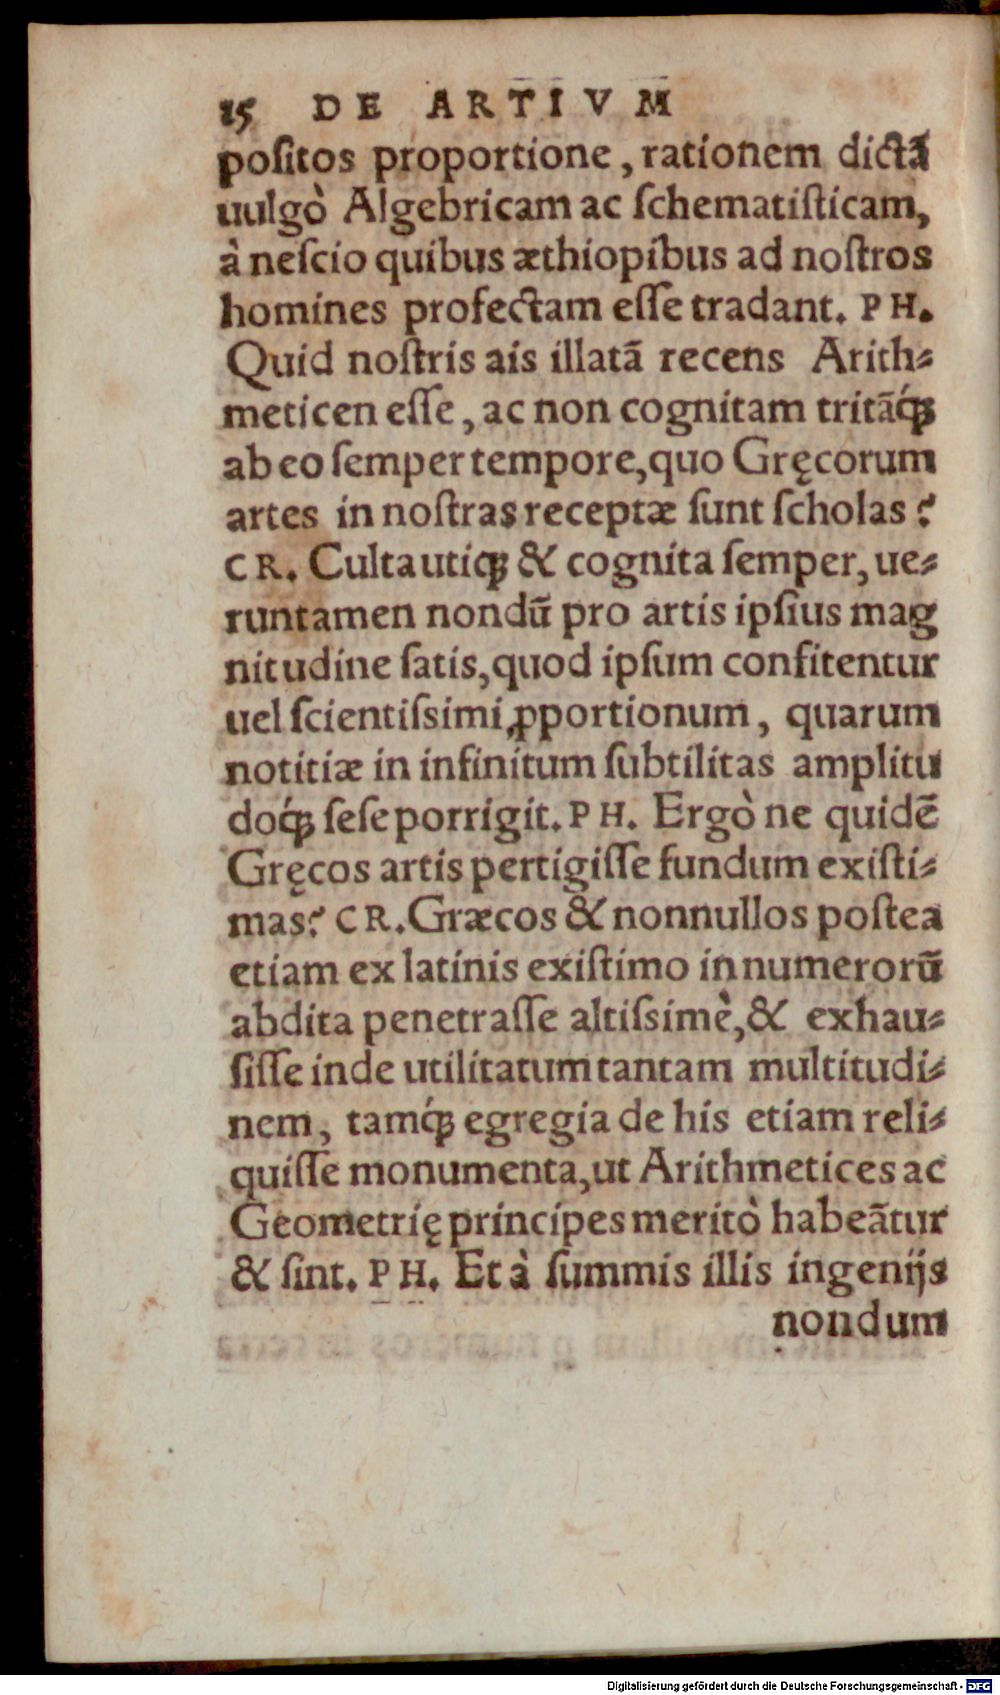 15 DE ARTIVM
poſitos proportione, rationem dictã
uulgò Algebricam ac ſchematiſticam,
à neſcio quibus æthiopibus ad noſtros
homines profectam eſſe tradant. PH.
Quid noſtris ais illatã recens Arith-
meticen eſſe, ac non cognitam tritãq́;
ab eo ſemper tempore, quo Gręcorum
artes in noſtras receptæ ſunt ſcholas?
CR. Culta utiq; & cognita ſemper, ue-
runtamen nondũ pro artis ipſius mag
nitudine ſatis, quod ipſum confitentur
uel ſcientiſsimi ꝓportionum, quarum
notitiæ in infinitum ſubtilitas amplitu
doq́; ſeſe porrigit. PH. Ergò ne quidẽ
Gręcos artis pertigiſſe fundum exiſti-
mas? CR. Græcos & nonnullos poſtea
etiam ex latinis exiſtimo in numerorũ
abdita penetraſſe altiſsimè, & exhau-
ſiſſe inde utilitatum tantam multitudi-
nem, tamq́; egregia de his etiam reli-
quiſſe monumenta, ut Arithmetices ac
Geometrię principes meritò habeãtur
& ſint. PH. Et à ſummis illis ingenijs
nondum
Digitalisierung gefördert durch die Deutsche Forschungsgemeinschaft - DFG